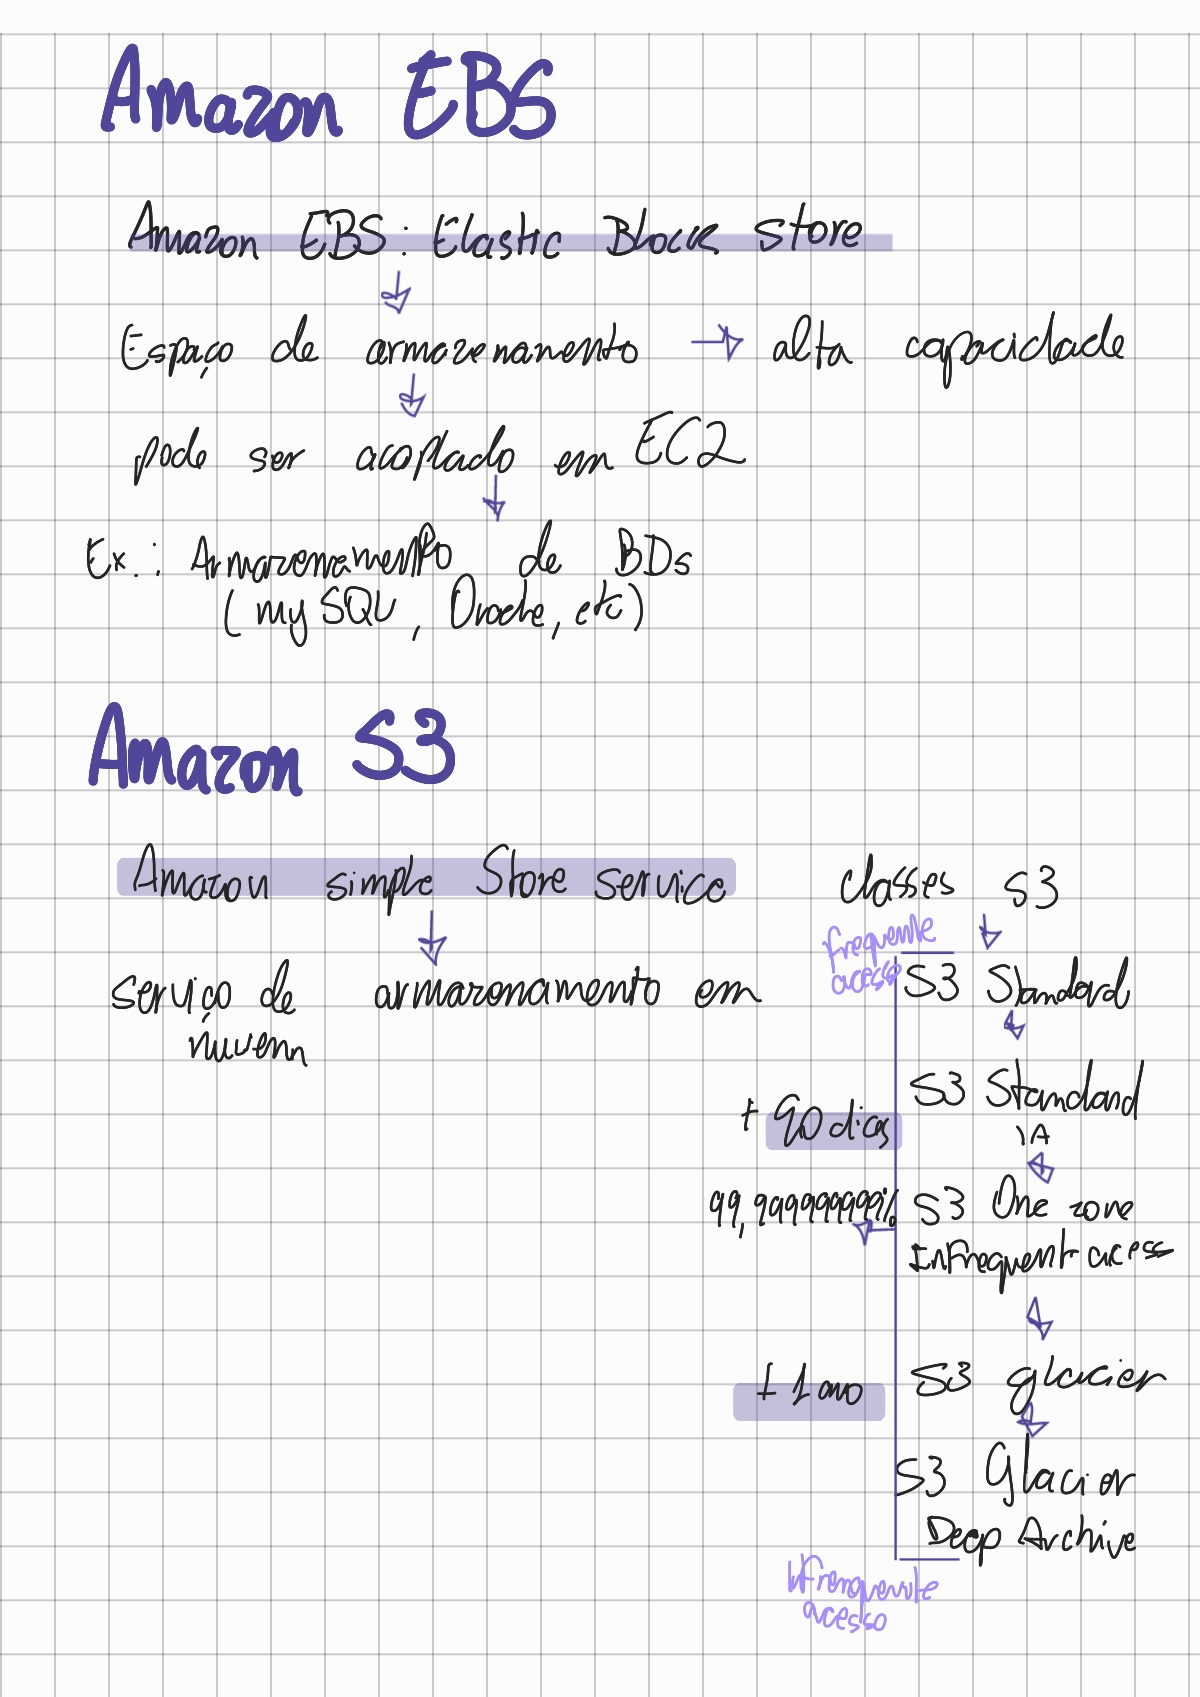 Amazon EBS
Amazon EBS : Elastic Block Store
Espaço de armazenamento → alta capacidade
pode ser acoplado em EC2
Ex.: Armazenamento de BDs
(mySQL, Oracle, etc)
Amazon S3
Amazon simple Store Service
serviço de armazenamento em
nuvem
classes S3
frequente
acesso
S3 Standard
S3 Standard
IA
+ 90 dias
99,999999999%
S3 One zone
Infrequent acess
+ 1 ano
S3 glacier
S3 Glacier
Deep Archive
acesso